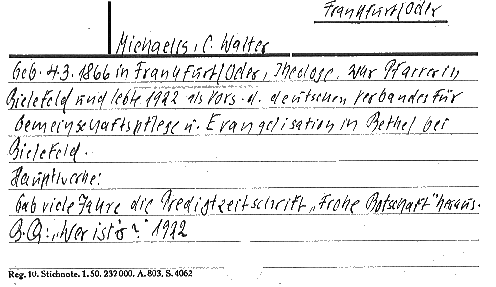 Frankfurt/Oder
Michaelis, C. Walter
Geb. 4.3.1866 in Frankfurt/Oder, Theologe, war Pfarrer in
Bielefeld und lebte 1922 als Vors. d. deutschen Verbandes für
Gemeinschaftspflege u. Evangelisation in Bethel bei
Bielefeld.
Hauptwerke:
Gab viele Jahre die Predigtzeitschrift „Frohe Botschaft" heraus.
B.Q.: „Wer ist's?" 1922
Reg. 10. Stichnote. 1. 50. 237 000. A. 803. S. 4062